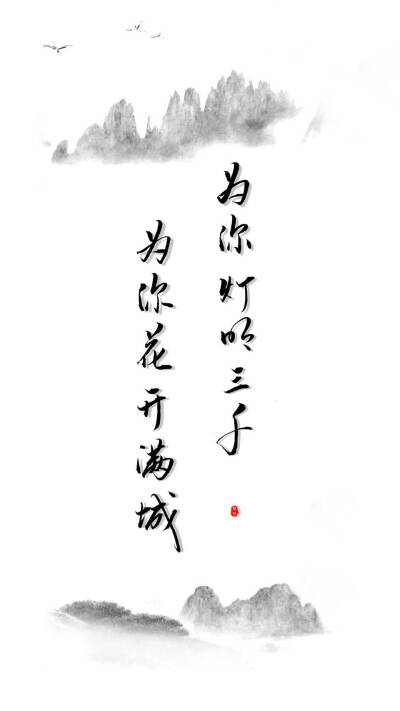 为你灯明三千
为你花开满城